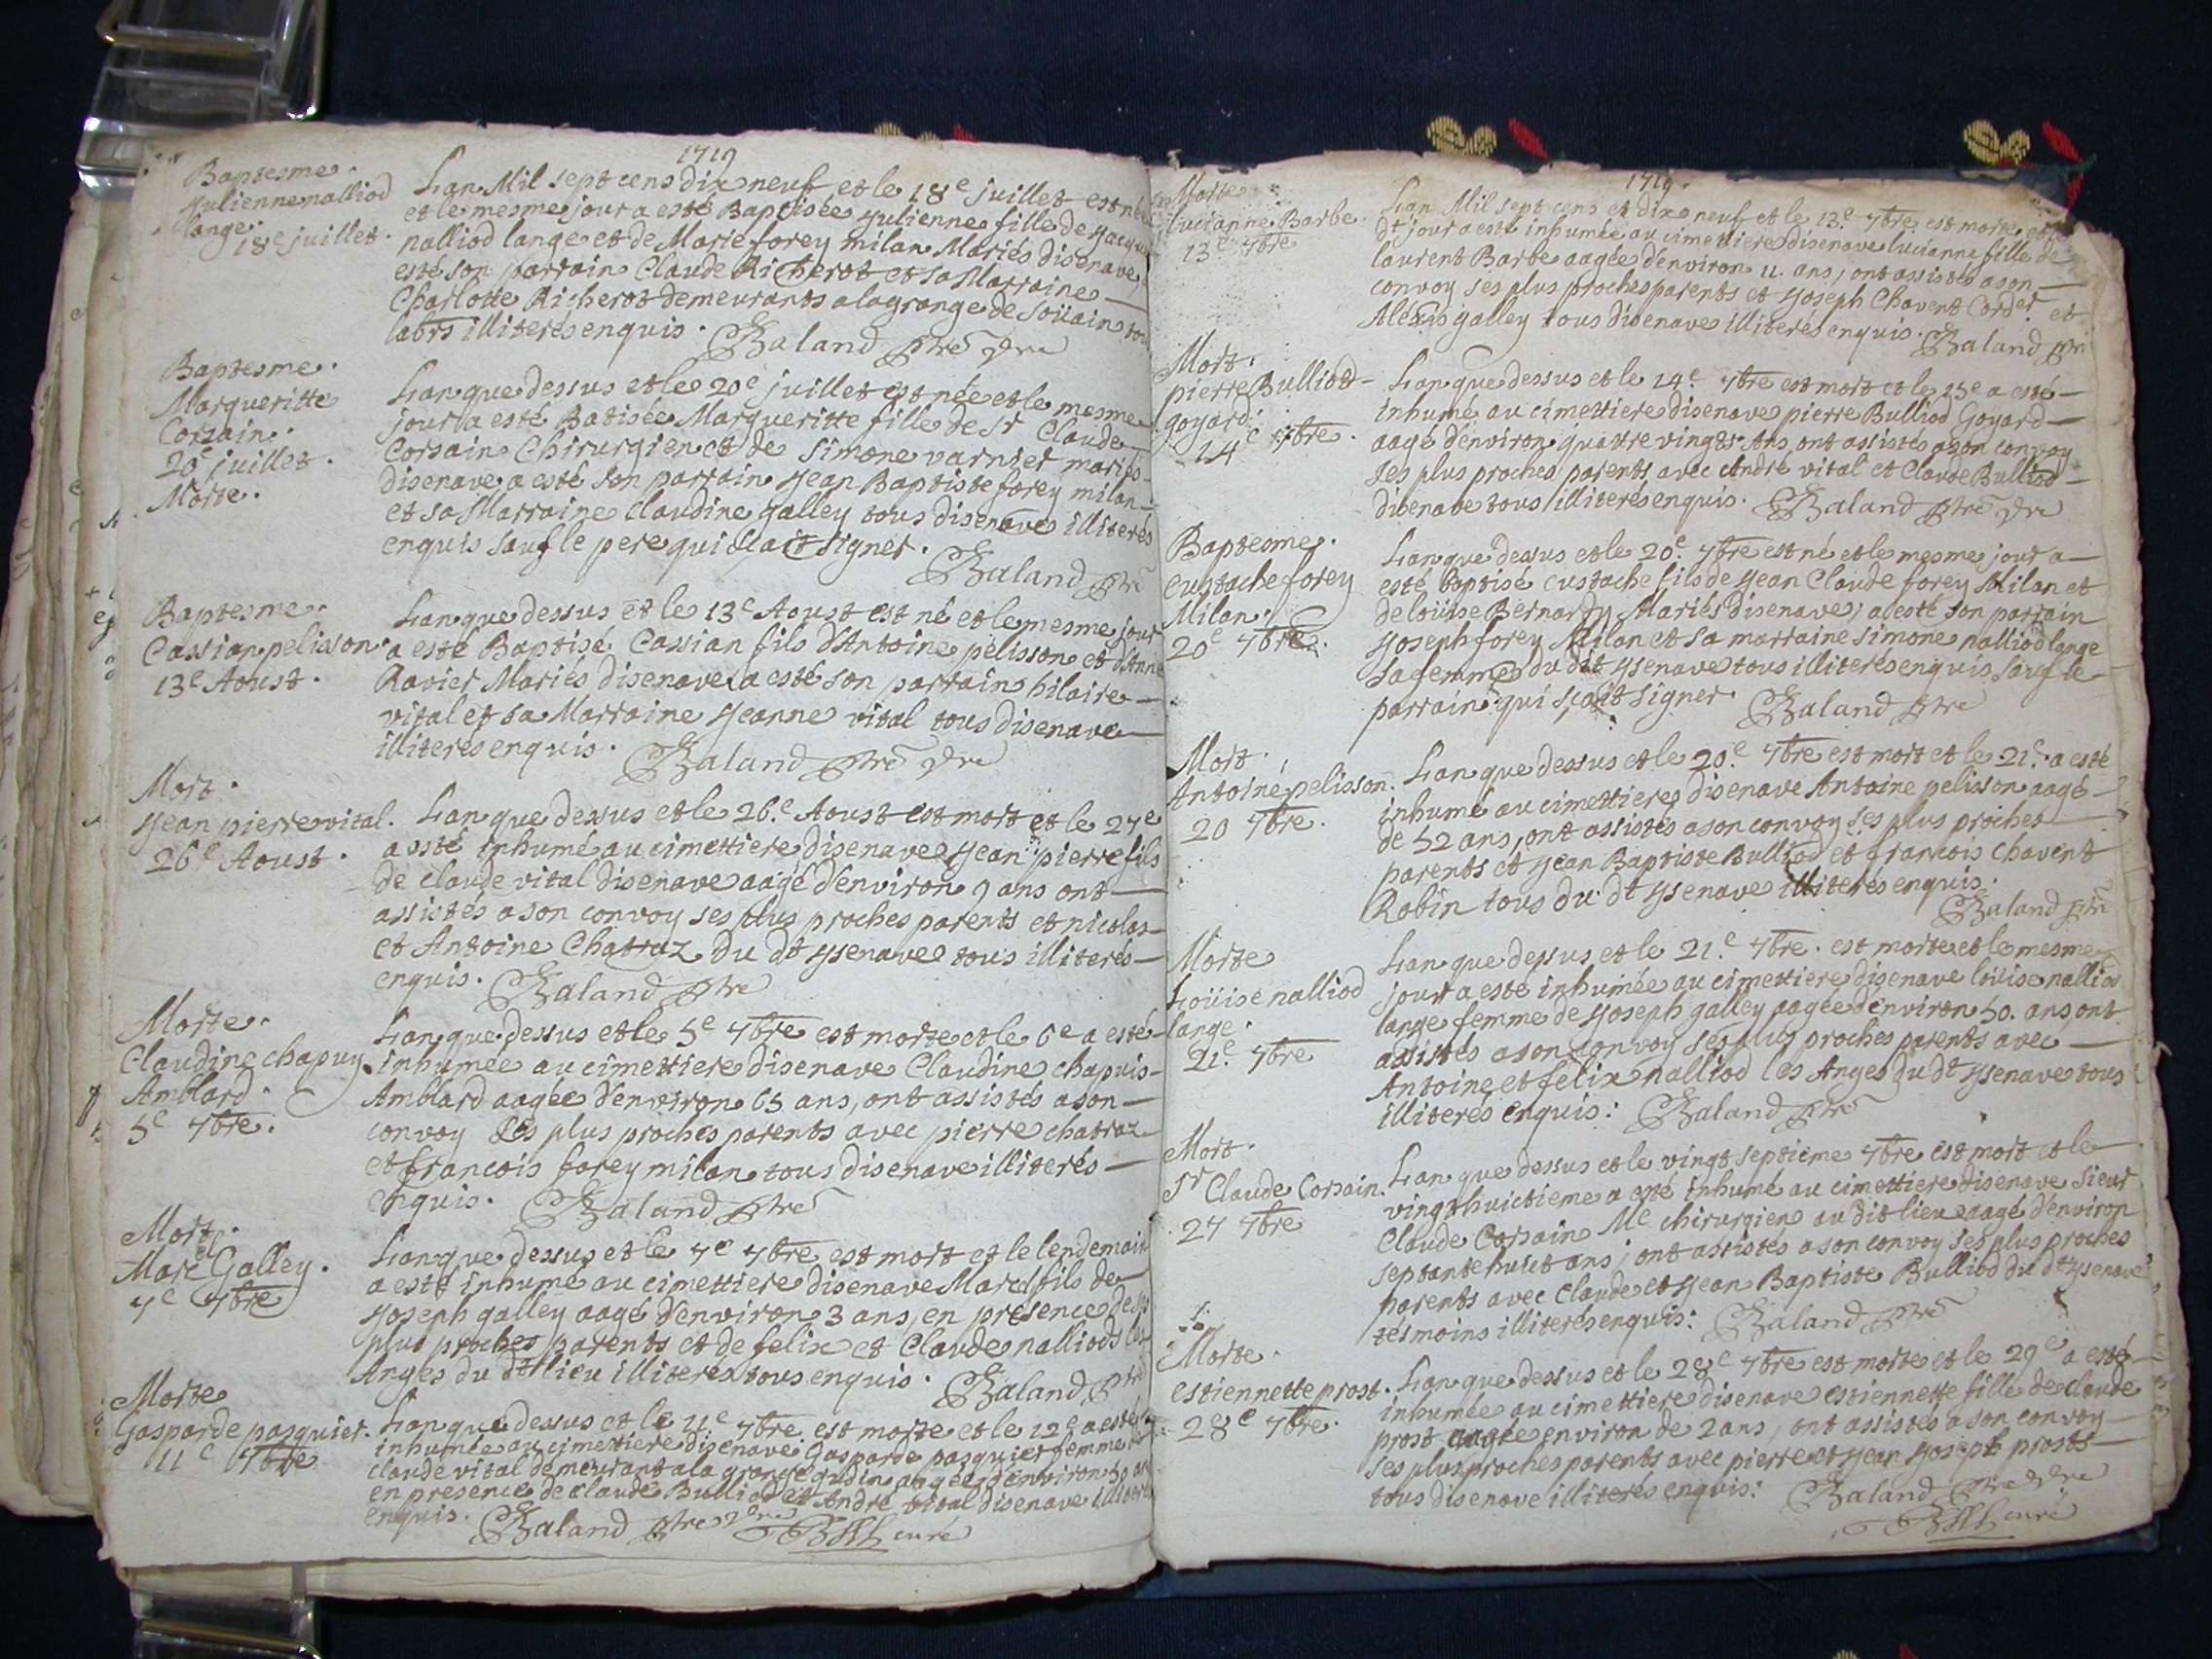 1719
Baptesme.
Yulienne nalliod
lange.
18e juillet.
Lan Mil sept cens dix neuf et le 18e juillet est née
et le mesme jour a esté Baptisée Yulienne fille de Yacque
nalliod lange et de Marie forey milan Mariés disenave,
esté son parrain Claude Richerot et sa Marraine
Charlotte Richerot demeurants a la grange de Soüain
labrs illiterés enquis. Baland ptre
Baptesme.
Margueritte
Corsain.
20e juillet.
Morte.
Lan que dessus et le 20e juillet est née et le mesme
jour a esté Batisée Margueritte fille de Sr Claude
Corsain Chirurgien et de Simone varnier mariés
disenave a esté son parrain Yean Baptiste forey milan
et sa Marraine Claudine galley tous disenaves illiterés
enquis sauf le pere qui scait signer.
Baland ptre
Baptesme.
Cassian pelisson.
13e Aoust.
Lan que dessus et le 13e Aoust est né et le mesme jour
a esté Baptisé Cassian fils d'Antoine pelisson et d'Anne
Ravier Mariés disenave a esté son parrain hilaire
vital et sa Marraine Yeanne vital tous disenave
illiterés enquis. Baland ptre
Mort.
Yean pierre vital.
26e Aoust.
Lan que dessus et le 26.e Aoust est mort et le 27e
a esté inhumé au cimettiere disenave Yean pierre fils
de claude vital disenave aagé d'environ 9 ans ont
assistés a son convoy ses plus proches parents et nicolas
et Antoine Chatraz du dt Ysenave tous illiterés
enquis. Baland ptre
Morte.
Claudine chapuy
Amblard.
5e 7bre.
Lan que dessus et le 5e 7bre est morte et le 6e a esté
inhumée au cimettiere disenave Claudine chapuis
Amblard aagée d'environ 65 ans, ont assistés a son
convoy Ses plus proches parents avec pierre chatraz
et francois forey milan tous disenave illiterés
enquis. Baland ptre
Mort.
Marc Galley.
7e 7bre
Lan que dessus et le 7e 7bre est mort et le lendemain
a esté inhumé au cimettiere disenave Marc fils de
Yoseph galley aagé d'environ 3 ans, en presence de ses
plus proches parents et de felix et Claude nalliods les
Anges du dt lieu illiterés tous enquis. Baland ptre
Morte
Gasparde pasquier.
11e 7bre
Lan que dessus et le 11e 7bre est morte et le 12e a esté
inhumée au cimettiere disenave Gasparde pasquier femme
claude vital demeurant a la grange gudin aagée d'environ 50 ans
en presence de Claude Bulliod et André vital disenave illiterés
enquis. Baland ptre
curé
1719.
Morte
lucianne Barbe.
13e 7bre
Lan Mil sept cens et dix neuf et le 13.e 7bre est morte et
dt jour a esté inhumée au cimettiere disenave lucianne fille de
laurent Barbe aagée d'environ 11. ans, ont assistés a son
convoy ses plus proches parents et Yoseph Chavent Corder et
Alexis galley tous disenaves illiterés enquis. Baland ptre
Mort.
pierre Bulliod
goyard.
14e 7bre.
Lan que dessus et le 14e. 7bre est mort et le 15e a esté
inhumé au cimettiere disenave pierre Bulliod Goyard
aagé d'environ quattre vingts Ans, ont assistés a son convoy
ses plus proches parents avec André vital et Claude Bulliod
disenave tous illiterés enquis. Baland ptre
Baptesme.
eustache forey
Milan.
20e 7bre.
Lan que dessus et le 20e. 7bre est né et le mesme jour a
esté Baptisé eustache fils de Yean Claude forey Milan et
de loüise Bernardy Mariés disenave, a esté son parrain
Yoseph forey Milan et sa marraine simone nalliod lange
sa femme du dit Ysenave tous illiterés enquis sauf le
parrain qui scait signer. Baland ptre
Mort.
Antoine pelisson.
20 7bre.
Lan que dessus et le 20.e 7bre est mort et le 21e. a esté
inhumé au cimettiere disenave Antoine pelisson aagé
de 52 ans, ont assistés a son convoy ses plus proches
parents et Yean Baptiste Bulliod et francois chavent
Robin tous du dt Ysenave illiterés enquis.
Baland ptre
Morte
Loüise nalliod
lange.
21e. 7bre
Lan que dessus et le 21e 7bre. est morte et le mesme
jour a esté inhumée au cimettiere disenave loüise nalliod
lange femme de Yoseph galley aagée d'environ 50. ans ont
assistés a son convoy ses plus proches parents avec
Antoine et felix nalliod les Anges du dt Ysenave tous
illiterés enquis: Baland ptre
Mort.
Sr Claude Corsain.
27 7bre
Lan que dessus et le vingt septieme 7bre est mort et le
vingt huictieme a esté inhumé au cimettiere disenave Sieur
Claude Corsain Me chirurgien au dit lieu aagé d'environ
septante huict ans, ont assistés a son convoy ses plus proches
parents avec Claude et Yean Baptiste Bulliod du dt Ysenave
tésmoins illiterés enquis: Baland ptre
Morte.
estiennette prost.
28e 7bre.
Lan que dessus et le 28e 7bre est morte et le 29e a esté
inhumée au cimettiere disenave estiennette fille de claude
prost aagée environ de 2 ans, ont assistés a son convoy
ses plus proches parents avec pierre et Yean Yoseph prosts
tous disenave illiterés enquis: Baland ptre
curé